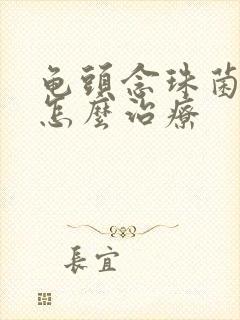 龟頭念珠菌
怎麼治療
長宜